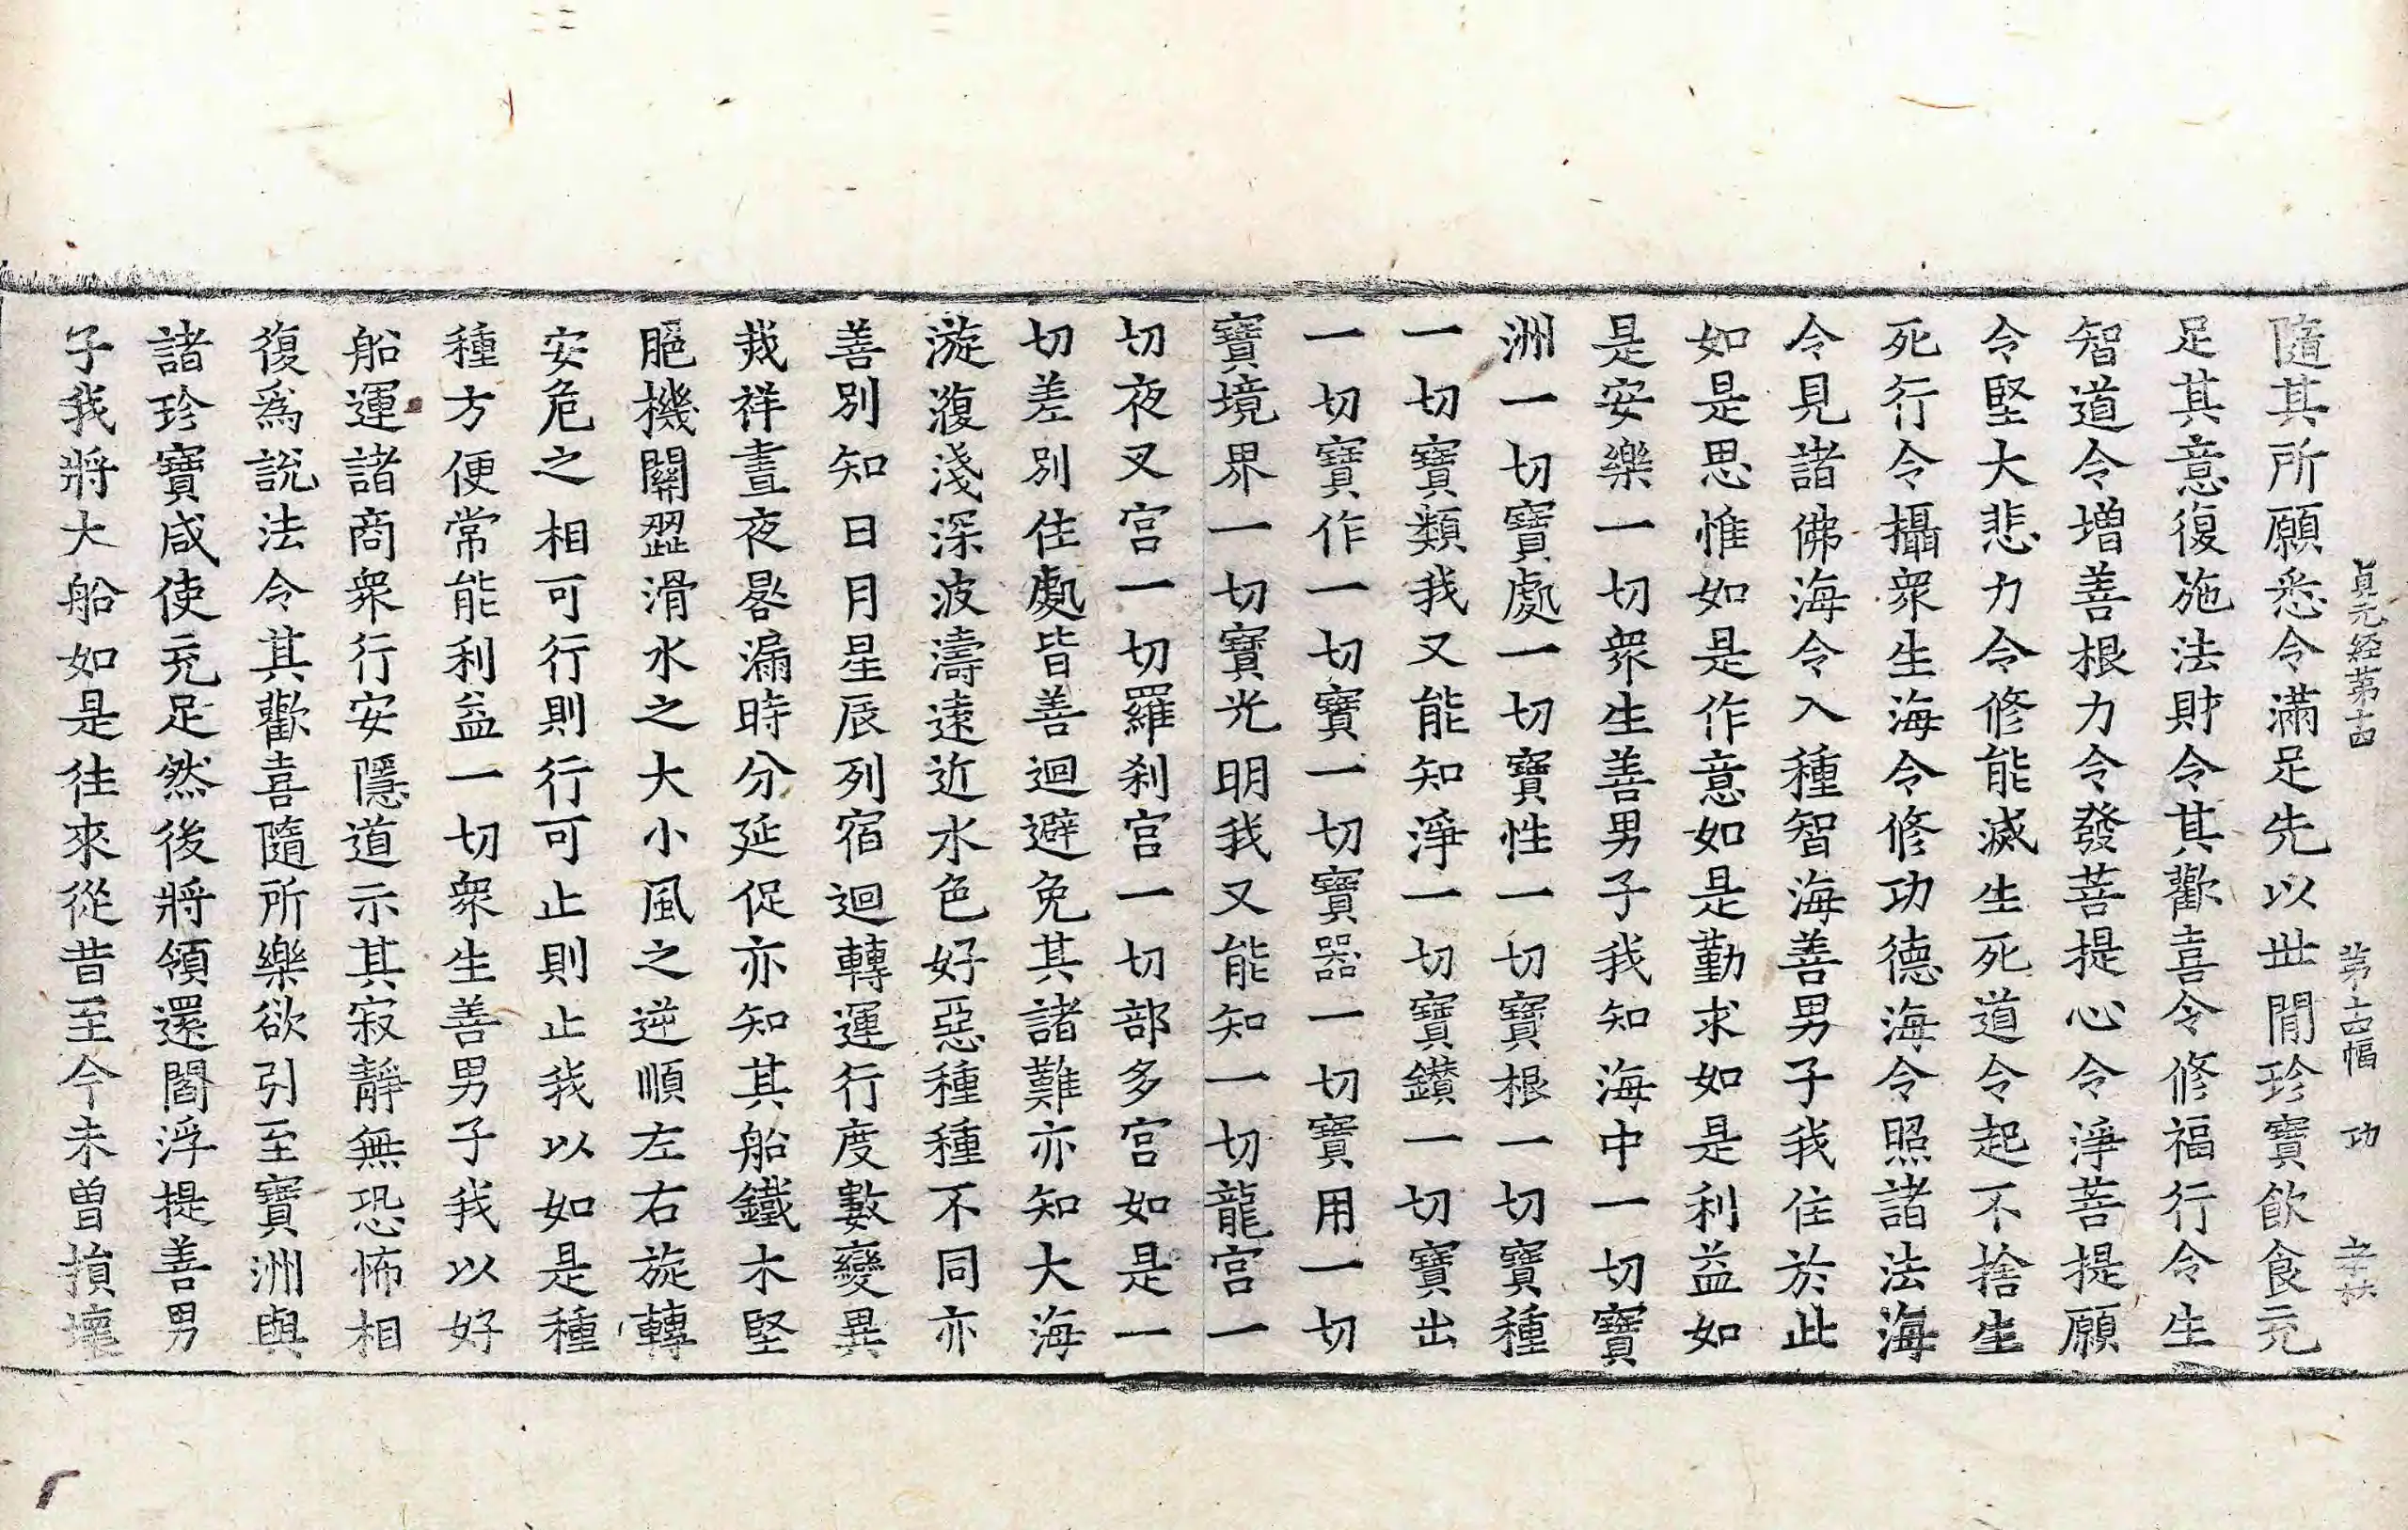 貞元経苐十四 苐十四幅 功
隨其所願悉令滿足先以世閒珎寶飲食充
足其意復施法財令其歡喜令修福行令生
智道令増善根力令發菩提心令淨菩提願
令堅大悲力令修能滅生死道令起不捨生
死行令攝衆生海令修功德海令照諸法海
令見諸佛海令入種智海善男子我住於此
如是思惟如是作意如是勤求如是利益如
是安樂一切衆生善男子我知海中一切寶
洲一切寶處一切寶性一切寶根一切寶種
一切寶類我又能知淨一切寶鑚一切寶出
一切寶作一切寶一切寶器一切寶用一切
寶境界一切寶光明我又能知一切龍宮一
切夜叉宮一切羅刹宮一切部多宮如是一
切差別住處皆善迴避免其諸難亦知大海
漩澓淺深波濤遠近水色好惡種種不同亦
善別知日月星辰列宿迴轉運行度數變異
烖祥晝夜晷漏時分延促亦知其船鐵木堅
脃機關澀滑水之大小風之逆順左右旋轉
安危之相可行則行可止則止我以如是種
種方便常能利益一切衆生善男子我以好
船運諸商衆行安隱道示其寂靜無恐怖相
復爲說法令其歡喜隨所樂欲引至寶洲與
諸珎寶咸使充足然後將領還閻浮提善男
子我將大船如是往來從昔至今未曾損壞